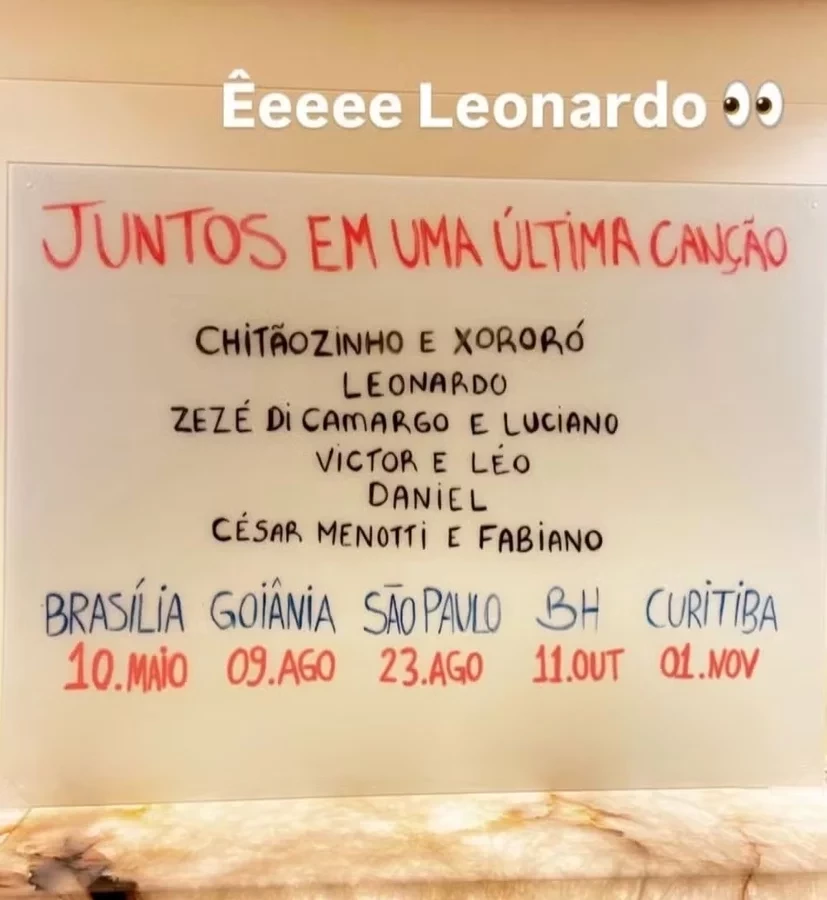 Êeeeee Leonardo 👀
JUNTOS EM UMA ÚLTIMA CANÇÃO
CHITÃOZINHO E XORORÓ
LEONARDO
ZEZÉ DI CAMARGO E LUCIANO
VICTOR E LÉO
DANIEL
CÉSAR MENOTTI E FABIANO
BRASÍLIA GOIÂNIA SÃO PAULO BH CURITIBA
10.MAIO 09.AGO 23.AGO 11.OUT 01.NOV